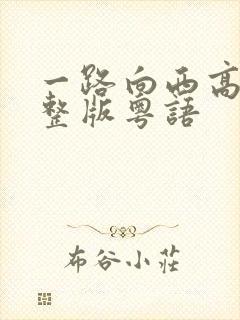 一路向西高
整版粤語
布谷小莊